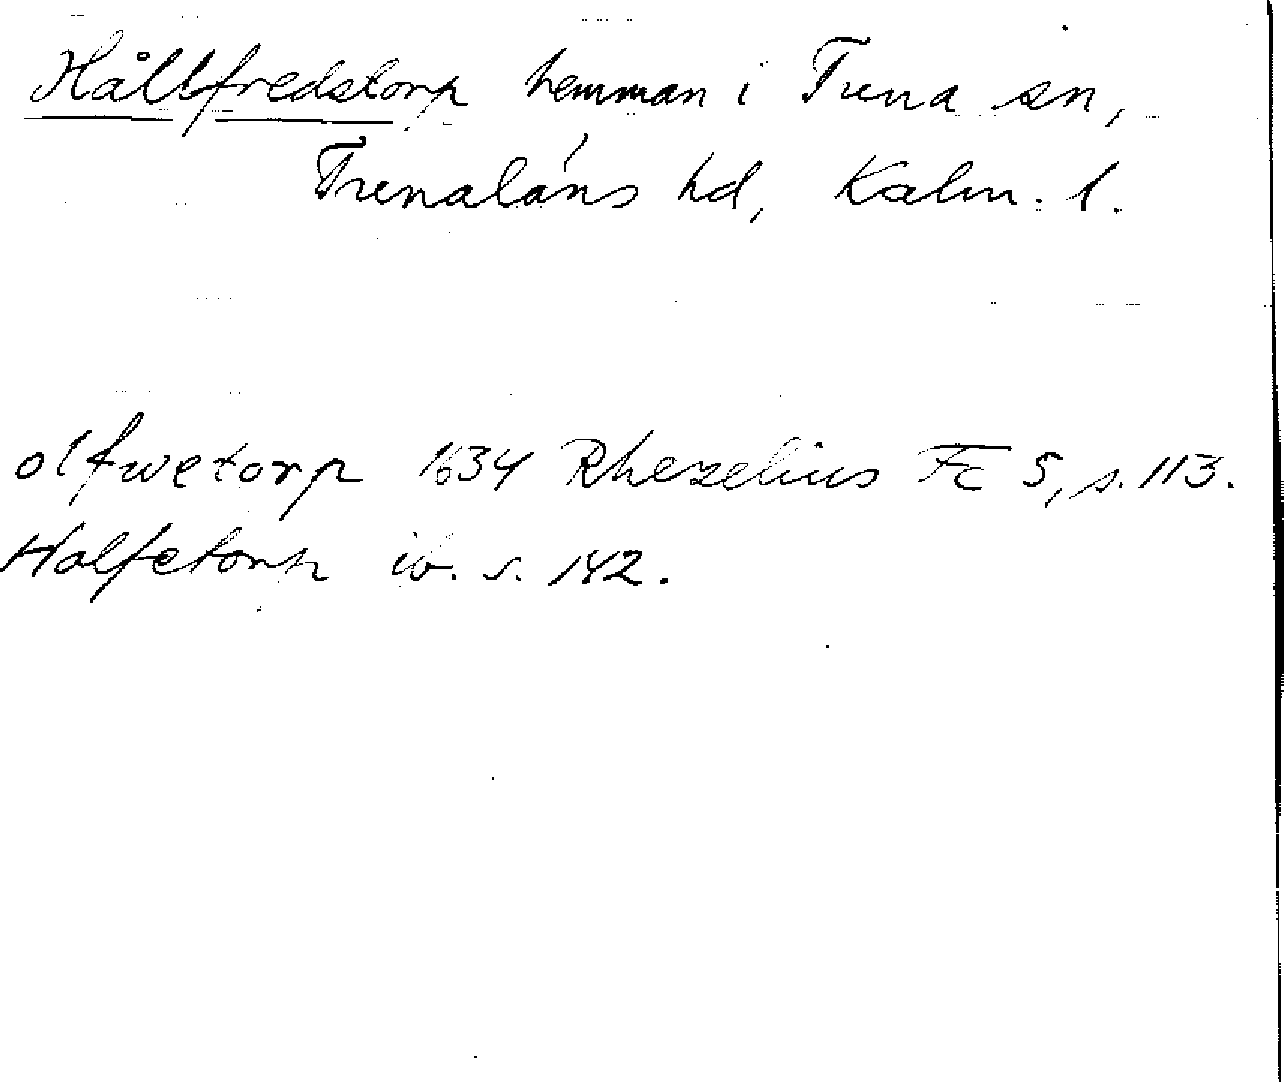 Hållfredstorp hemman i Tuna sn,
Tunaläns hd, Kalm. l.
olfwetorp 1634 Rhezelius Fc 5, s. 113.
Holfetorp ib. s. 142.